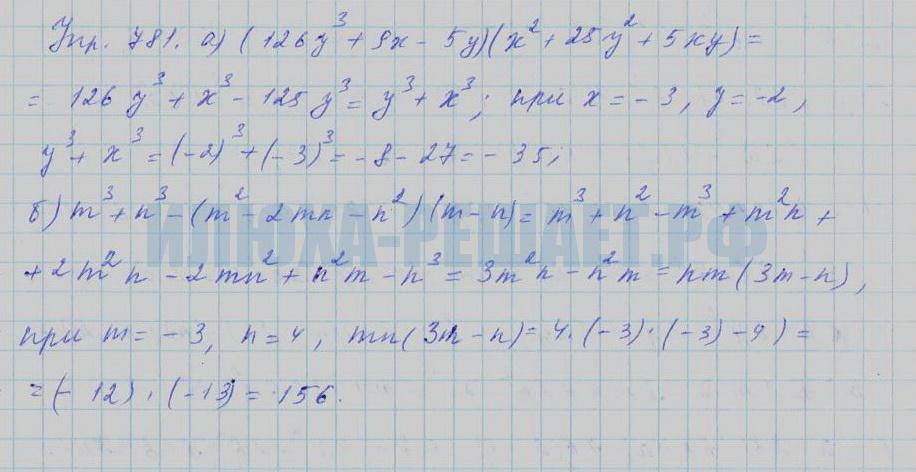 Упр. 781. а) (126y³ + 9x - 5y)(x² + 25y² + 5xy) =
= 126 y³ + x³ - 125 y³ = y³ + x³; при x = -3, y = -2,
y³ + x³ = (-2)³ + (-3)³ = -8 - 27 = -35;
б) m³ + n³ - (m² - 2mn - n²)(m - n) = m³ + n² - m³ + m²n +
ИЛЮХА-РЕШАЕТ.РФ
+ 2m²n - 2mn² + n²m - n³ = 3m²n - n²m = nm(3m - n),
при m = -3, n = 4, mn(3m - n) = 4·(-3)·(-3) - 4) =
= (-12)·(-13) = 156.